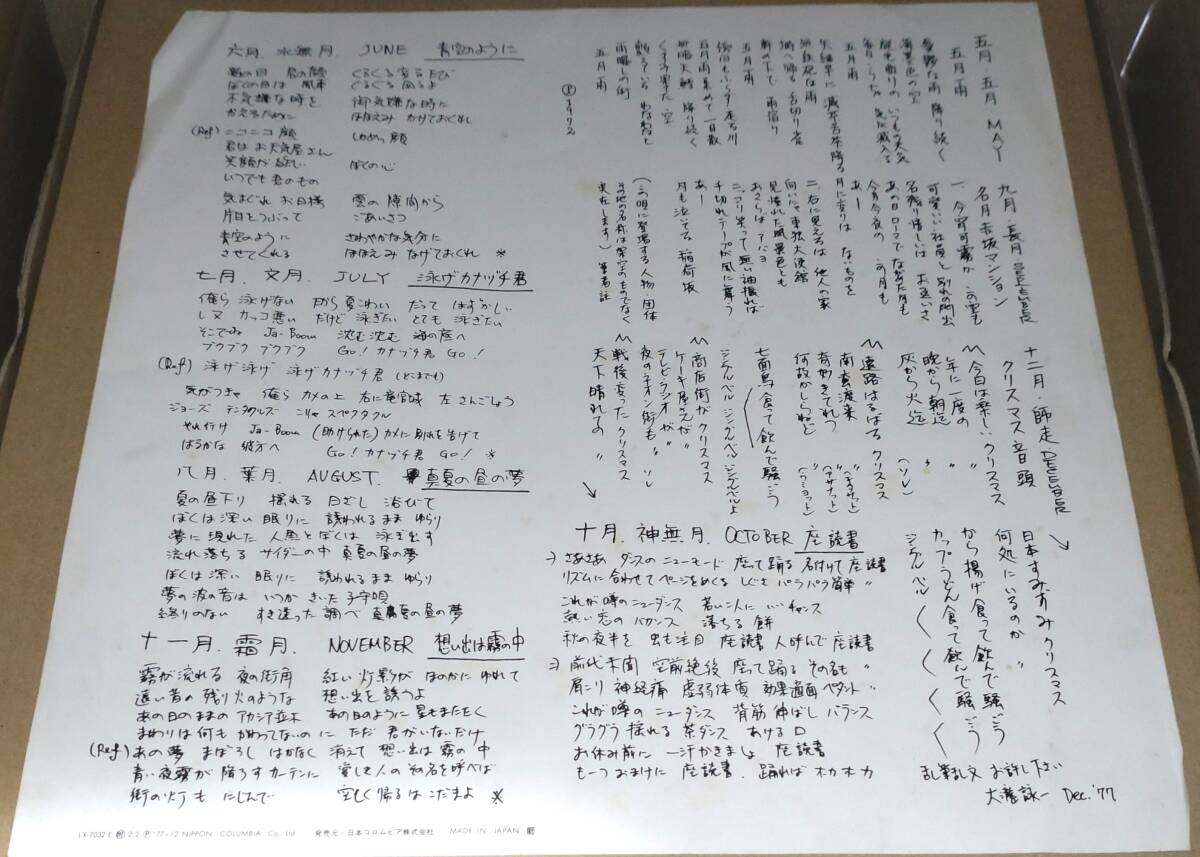 六月. 水無月. JUNE 青空のように
ぼくの目は 風車 くるくる 回るよ
不気嫌な時を 御気嫌な時に
かえるために ほほえみ かけておくれ
(Ref) ニコニコ顔 しかめっ顔
君は お天気屋さん
笑顔が欲しい ぼくの心
いつでも君のもの
気まぐれ お日様 雲の隙間から
片目をつぶって ごあいさつ
青空のように さわやかな気分に
させてくれる ほほえみ なげておくれ ※
七月. 文月. JULY 泳げカナヅチ君
俺ら 泳げない だから 夏こわい だって はずかしい
し又 カッコ悪い だけど 泳ぎたい とても 泳ぎたい
そこでね Ja-Boom 沈む沈む 海の底へ
ブクブク ブクブク Go! カナヅチ君 Go!
(Ref) 泳げ泳げ 泳げカナヅチ君 (どこまでも)
気がつきゃ 俺ら カメの上 右に竜宮城 左さんごしょう
ジョーズ テンタクルズ こりゃ スペクタクル
やれ行け Ja-Boom (助けられた) カメに別れを告げて
はるかな 彼方へ Go! カナヅチ君 Go! ※
八月. 葉月. AUGUST. 真夏の昼の夢
夏の昼下り 揺れる 日ざし 浴びて
ぼくは深い 眠りに 誘われるまま ゆらり
夢に現れた 人魚とぼくは 泳ぎ出す
流れ落ちる サイダーの中 真夏の昼の夢
ぼくは深い 眠りに 誘われるまま ゆらり
夢の波の音は いつか きいた 子守唄
終りのない すき透った調べ 真夏の昼の夢
十一月. 霜月. NOVEMBER 想い出は霧の中
霧が流れる 夜の街角 紅い灯影が ほのかに ゆれて
遠い昔の 残り火のような 想い出を 誘うよ
あの日のままの アカシア並木 あの日のように 星もまたたく
まわりは何も かわってないのに ただ 君がいないだけ
(Ref) あの夢 まぼろし はかなく 消えて 想い出は 霧の中
青い夜霧が 降ろすカーテンに 愛した人の その名を呼べば
街の灯も にじんで 空しく帰る こだまよ ※
五月. 五月 MAY
五月雨
憂鬱な雨 降り続く
五月雨
無鉄砲な雨
軒の下で 雨宿り
五月雨
五月雨集めて 一日散
降り続く
くまなく果てた 空
五月雨
Ⓟ1972
九月・長月・SEPTEMBER
名月赤坂マンション
一、今宵可愛か この室も
可愛いい社員と 別れの門出
名残り惜しいは お互いさ
あの日ローマで ながめた月も
今宵今夜の この月も
月に変りは ないものを
あー
二、右に見えるは 他人の家
向いにゃ 車狭大使館
見慣れた風景色とも
おさらば アバヨ
ニッコリ笑って 無い袖振れば
千切れテープが 風に舞う
あー
月も泣いてる 稲荷坂
(この唄に登場する人物、団体
その他の名称は架空のものでなく
実在します) 筆者註
十二月・師走 DECEMBER
クリスマス音頭
今日は楽しい クリスマス
年に一度の 〃
晩から朝迄 〃
灰から火迄 (ソレ)
遠路はるばる クリスマス
南蛮渡来
奇妙きてれつ
何故かしらねど
七面鳥食って 飲んで騒ごう
ジングルベル ジングルベル ジングルベルよ
商店街が クリスマス
ケーキ屋さんが 〃
テレビラジオが 〃
夜のネオン街も 〃 ソレ
戦後変った クリスマス
天下晴れての 〃
日本すみずみ クリスマス
何処にいるのか 〃
から揚げ食って 飲んで騒ごう
カップうどん食って 飲んで騒ごう
ジングルベル
十月. 神無月. OCTOBER 座読書
さあさあ ダンスのニューモード 座って踊る 名付けて 座読書
リズムに合わせて ページをめくる しぐさ パラパラ 簡単 〃
これが噂のニューダンス 若い二人に … チャンス
熱い恋の バカンス 落ちる 餅
秋の夜半を 虫も注目 座読書 人呼んで 座読書
前代未聞 空前絶後 座って踊る その名も 〃
肩こり 神経痛 虚弱体質 効果適面 ペダント 〃
これが噂の ニューダンス 背筋 伸ばし バランス
グラグラ 揺れる 茶ダンス あける 口
お休み前に 一汗かきましょ 座読書
も一つおまけに 座読書. 踊れば ホカホカ
乱筆乱文 お許し下さい
大瀧詠一 Dec.'77
LX-7032-E 2:2 Ⓟ'77•12 NIPPON COLUMBIA Co., Ltd. 発売元・日本コロムビア株式会社 MADE IN JAPAN